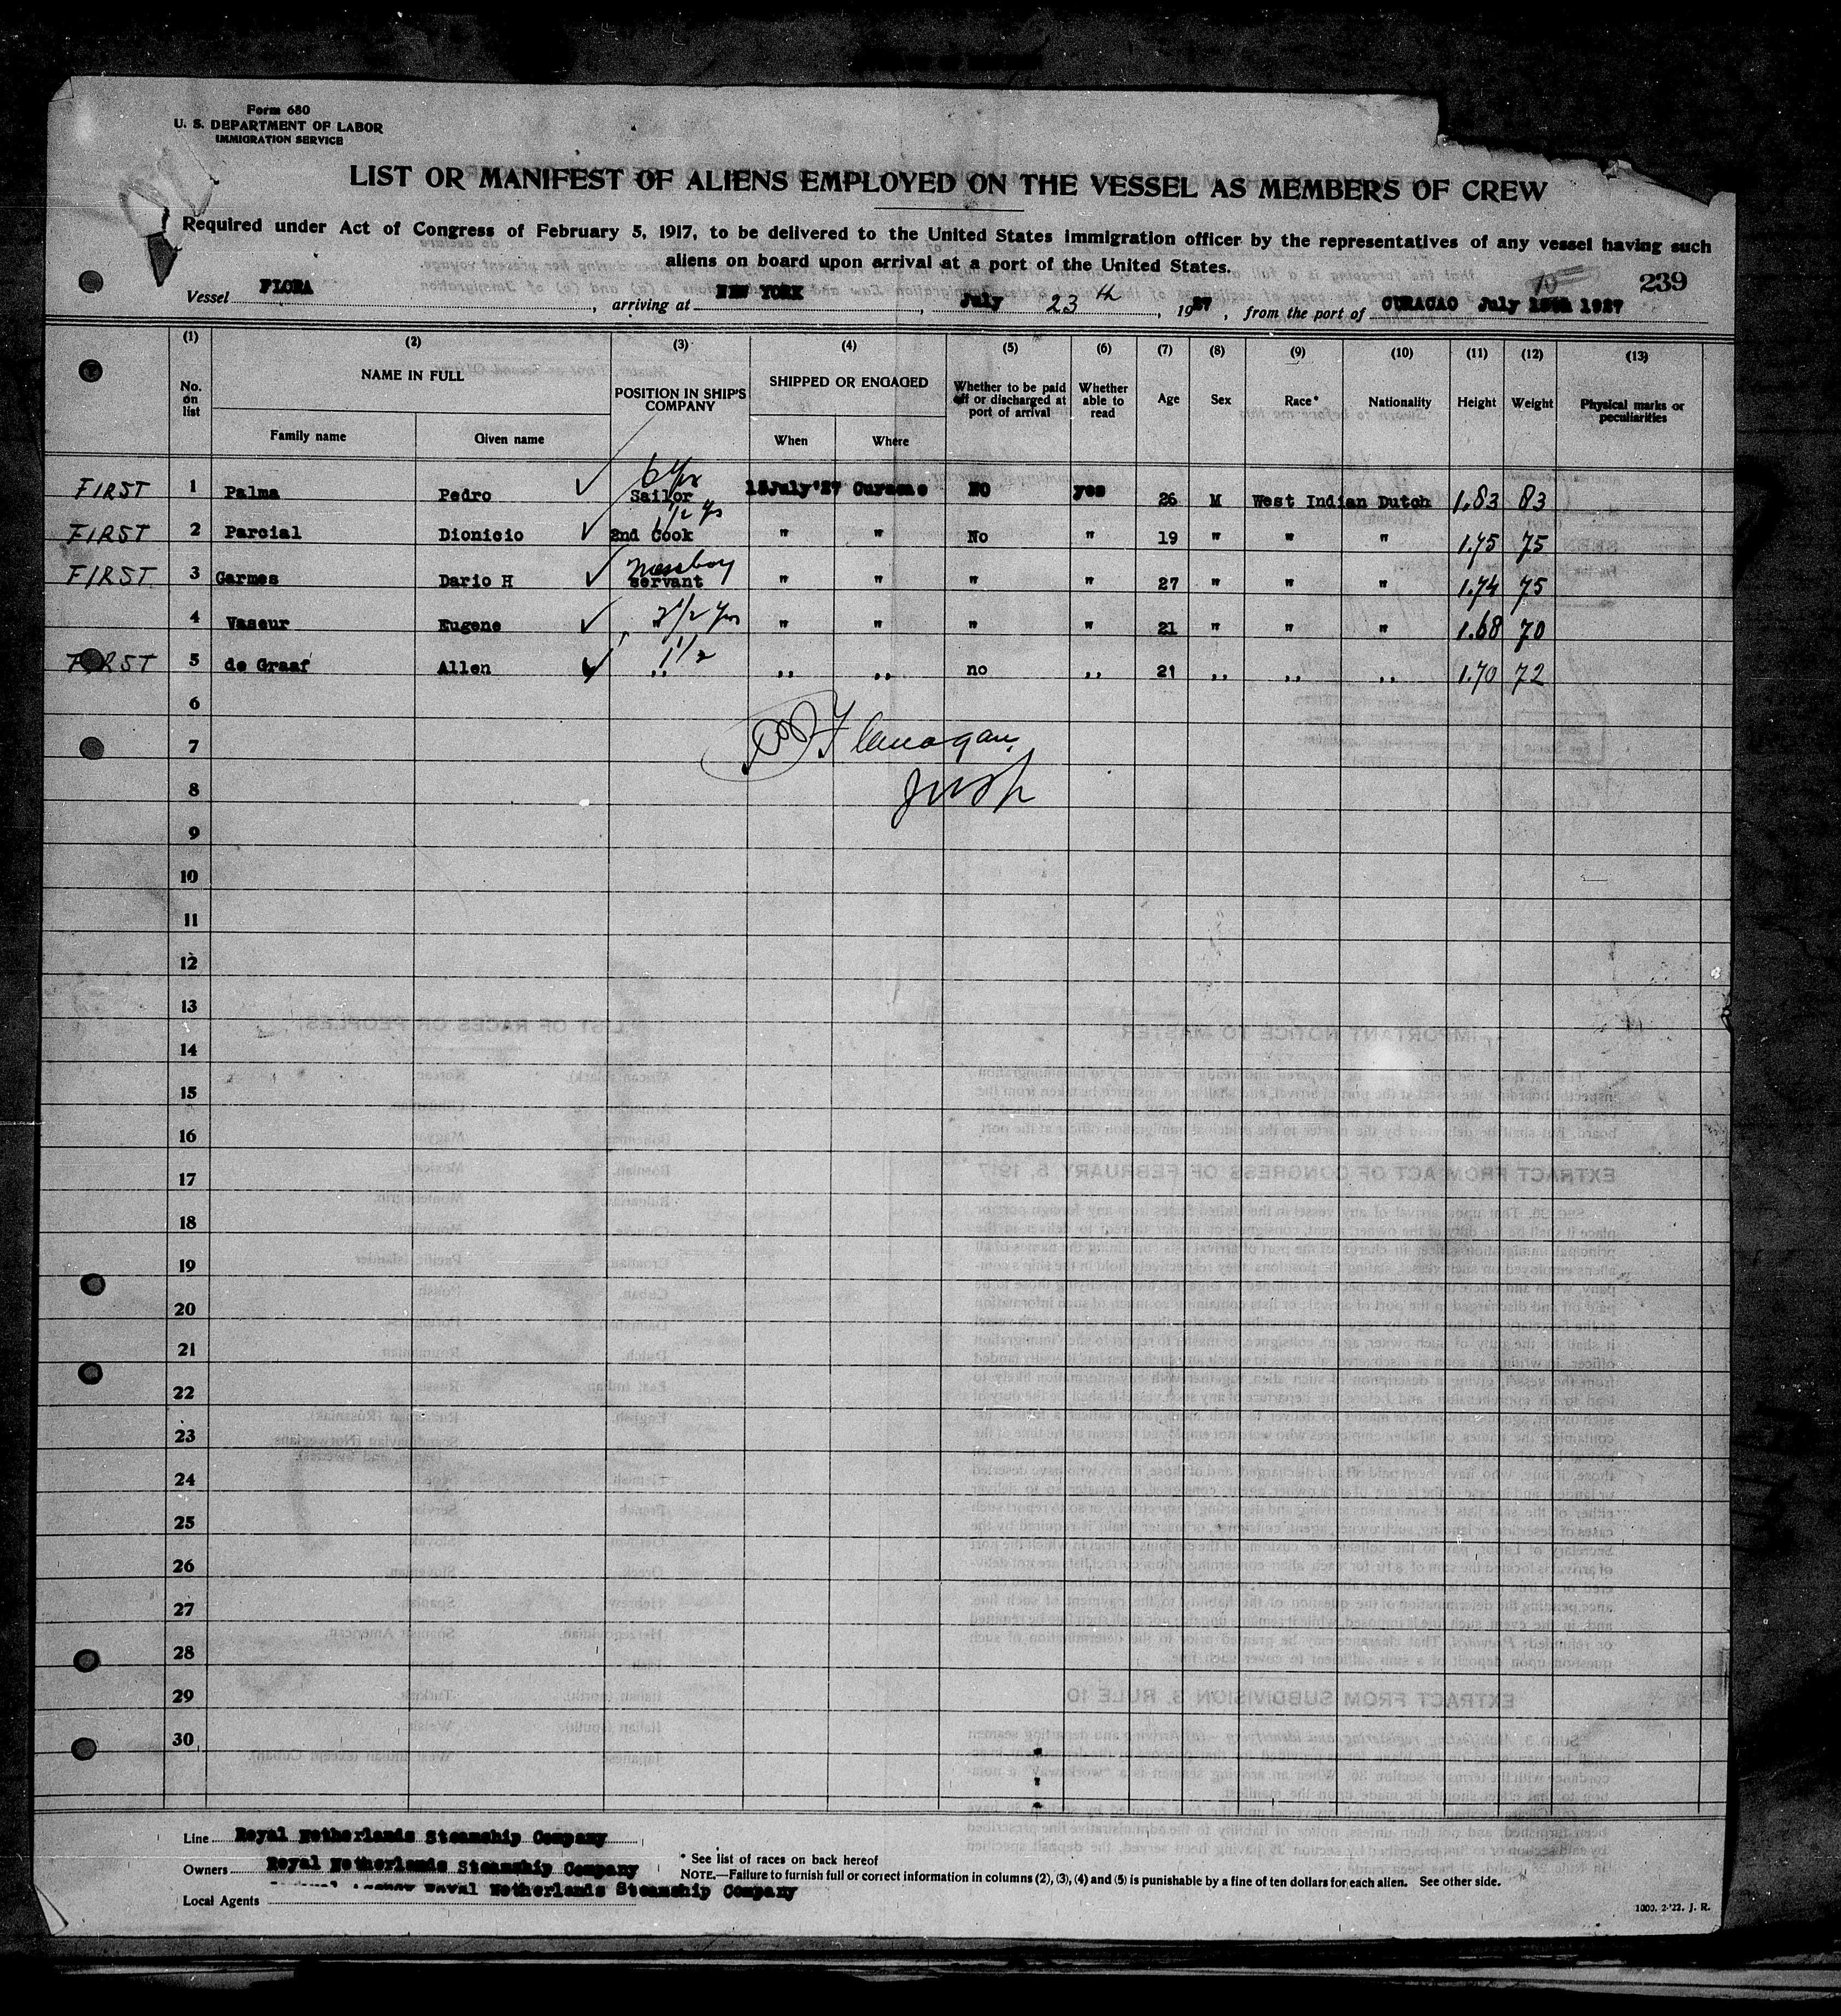 Form 680
U. S. DEPARTMENT OF LABOR
IMMIGRATION SERVICE
LIST OR MANIFEST OF ALIENS EMPLOYED ON THE VESSEL AS MEMBERS OF CREW
Required under Act of Congress of February 5, 1917, to be delivered to the United States immigration officer by the representatives of any vessel having such
aliens on board upon arrival at a port of the United States.
10 239
Vessel FLORA, arriving at NEW YORK, July 23th, 1927, from the port of CURACAO July 15th 1927
(1) (2) (3) (4) (5) (6) (7) (8) (9) (10) (11) (12) (13)
No. on list NAME IN FULL POSITION IN SHIP'S COMPANY SHIPPED OR ENGAGED Whether to be paid off or discharged at port of arrival Whether able to read Age Sex Race* Nationality Height Weight Physical marks or peculiarities
Family name Given name When Where
FIRST 1 Palma Pedro ✓ 6 yrs Sailor 15July'27 Curacao NO yes 26 M West Indian Dutch 1.83 83
FIRST 2 Parcial Dionicio ✓ 1/2 yrs 2nd Cook " " No " 19 " " " 1.75 75
FIRST 3 Garmes Dario H ✓ messboy servant " " " " 27 " " " 1.74 75
4 Vaseur Eugene ✓ 2 1/2 yrs " " " " " 21 " " " 1.68 70
FIRST 5 de Graaf Allen ✓ 1 1/2 ,, ,, ,, no ,, 21 ,, ,, ,, 1.70 72
6
Flanagan
7
8
9
10
11
12
13
14
15
16
17
18
19
20
21
22
23
24
25
26
27
28
29
30
Line Royal Netherlands Steamship Company
Owners Royal Netherlands Steamship Company
* See list of races on back hereof
NOTE.—Failure to furnish full or correct information in columns (2), (3), (4) and (5) is punishable by a fine of ten dollars for each alien. See other side.
Local Agents Netherlands Steamship Company
1000. 2-'22. J. R.